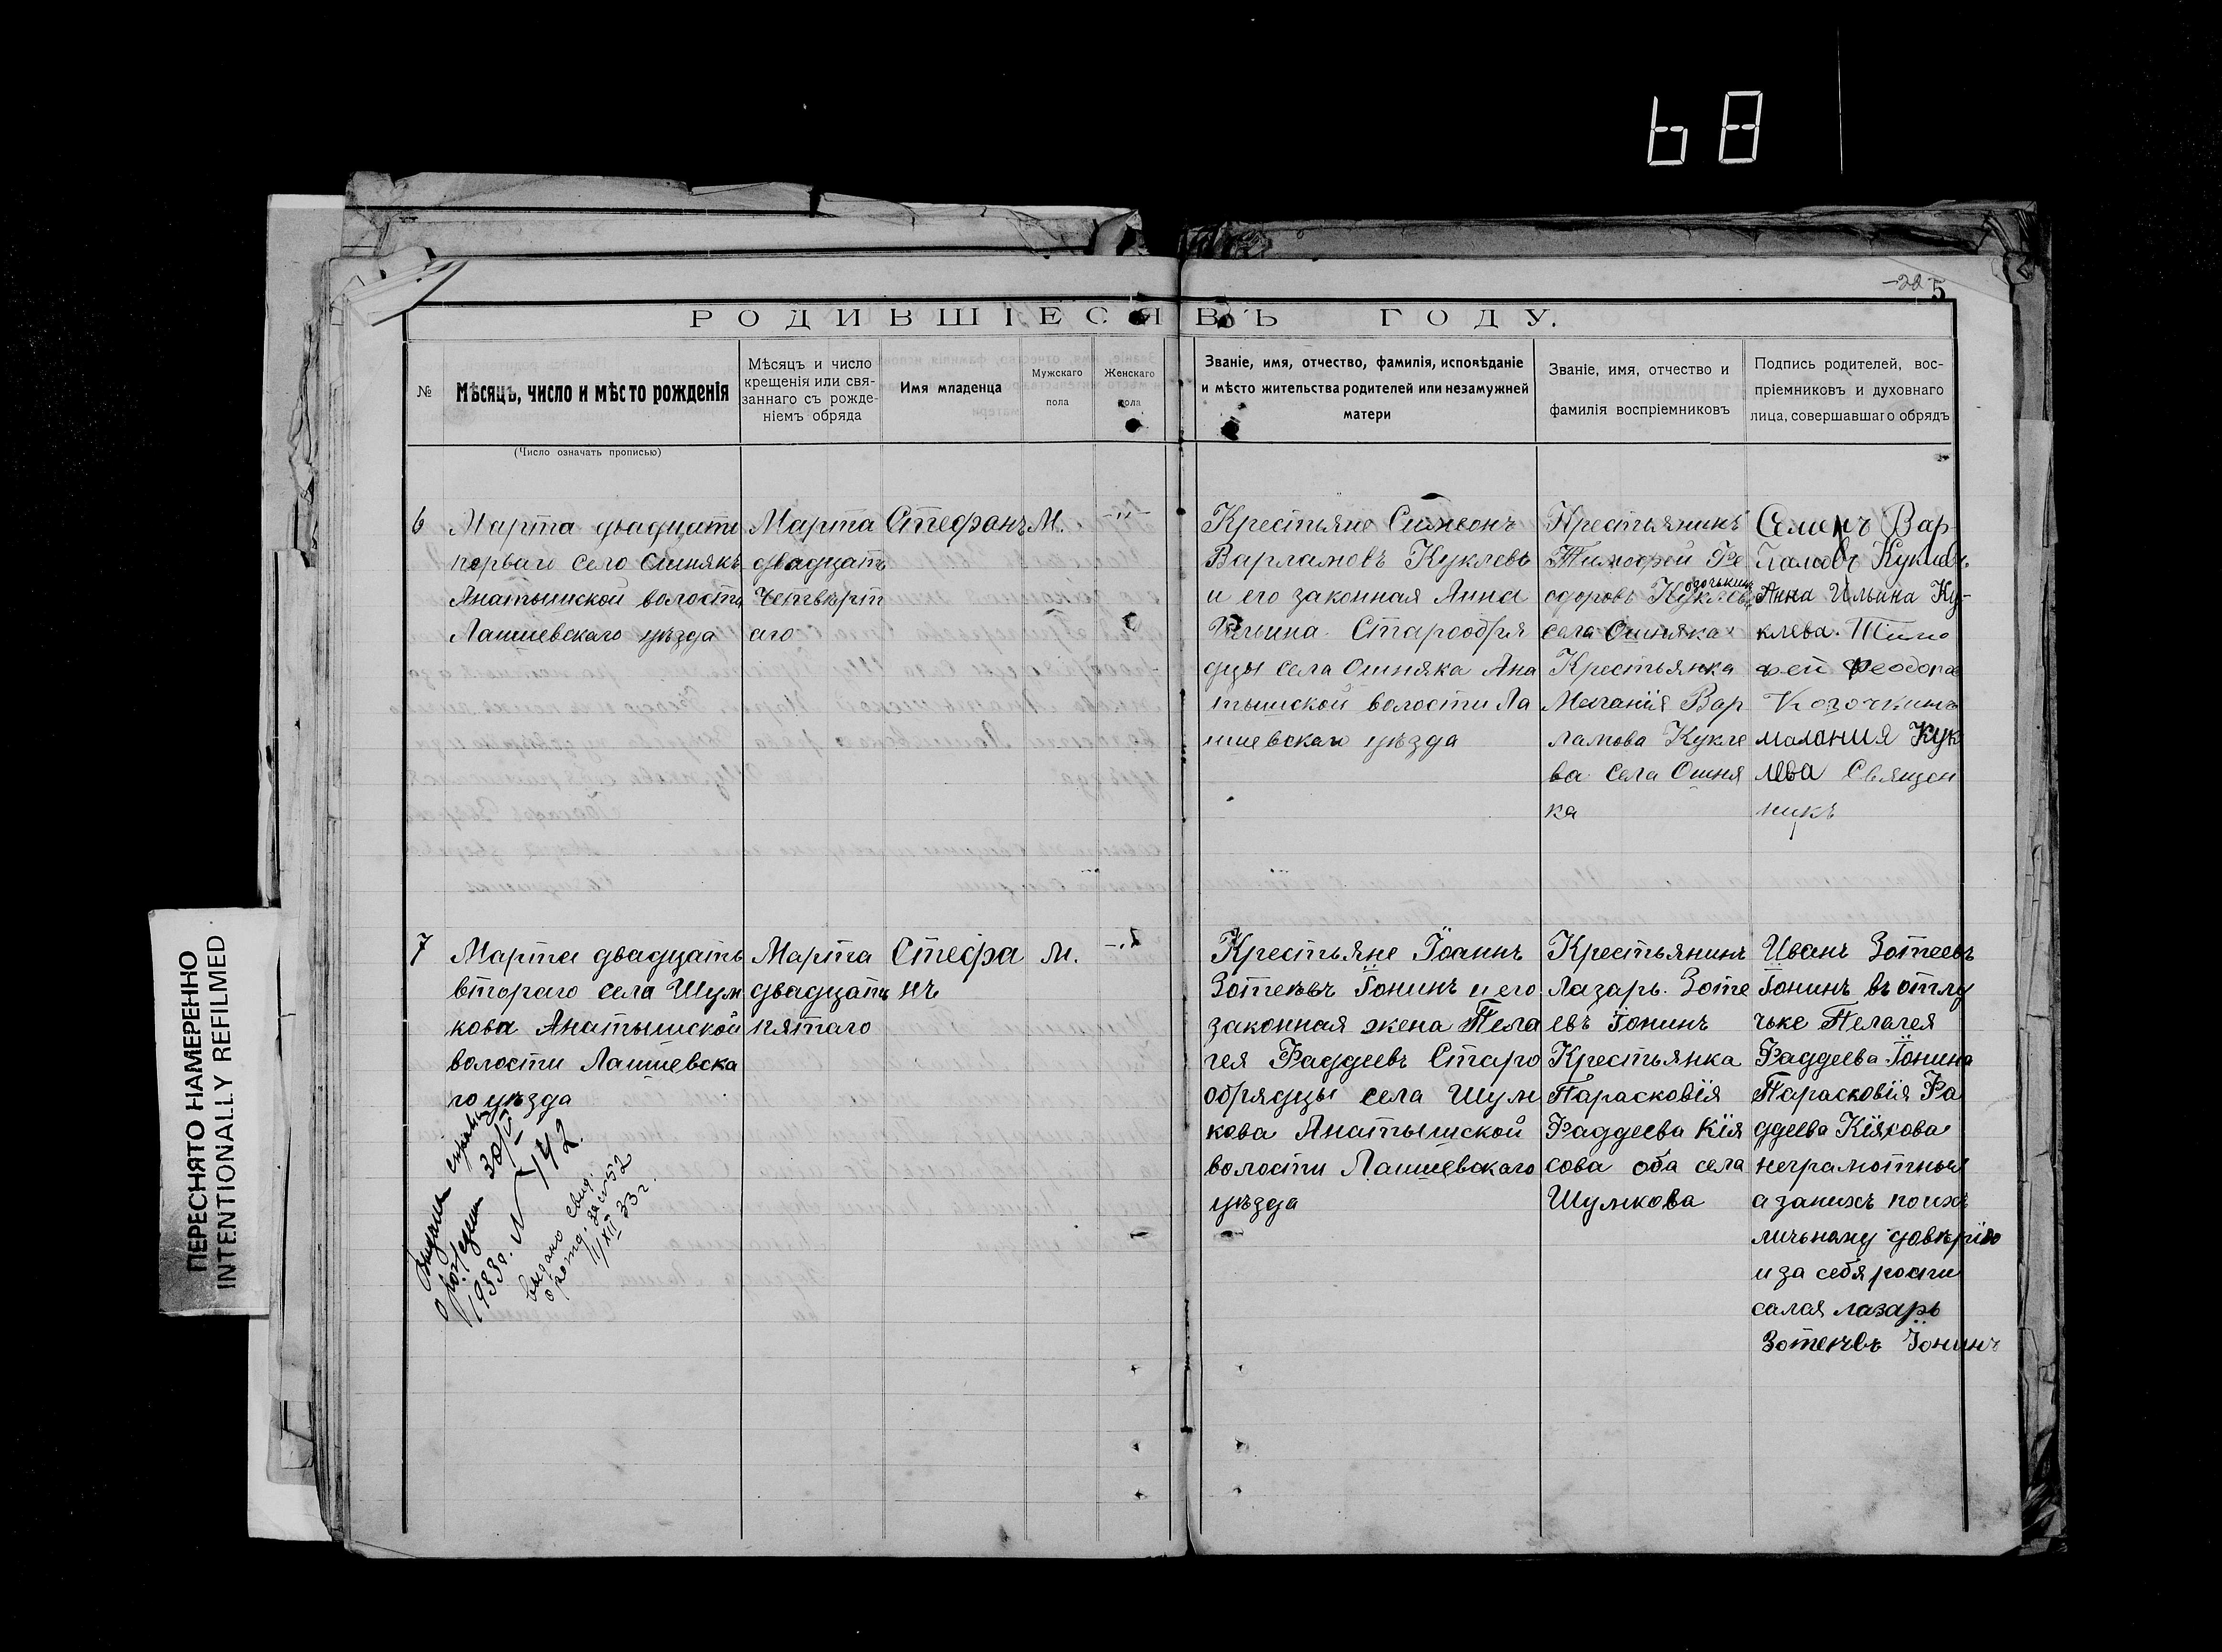 68
-22
5
РОДИВШІЕСЯ ВЪ ГОДУ.
№
Мѣсяцъ, число и мѣсто рожденія
(Число означать прописью)
Мѣсяцъ и число
крещенія или свя-
заннаго съ рожде-
ніемъ обряда
Имя младенца
Мужскаго
пола
Женскаго
пола
Званіе, имя, отчество, фамилія, исповѣданіе
и мѣсто жительства родителей или незамужней
матери
Званіе, имя, отчество и
фамилія воспріемниковъ
Подпись родителей, вос-
пріемниковъ и духовнаго
лица, совершавшаго обрядъ
6
Марта двадцати
перваго село Ошнякъ
Анатышской волости
Лаишевскаго уѣзда
Марта
двадцать
четвѣрт
аго
Стефанъ
М.
-"-
Крестьяне Симеонъ
Варламовъ Куклевъ
и его законная Анна
Ильина Старообря
дцы села Ошняка Ана
тышской волости Ла
ишевскаго уѣзда
Крестьянинъ
Тимофей Фе
одоровъ Козочкинъ
села Ошняка
Крестьянка
Меланія Вар
ламова Кукле
ва села Ошня
ка
Семенъ Вар-
ламовъ Куклевъ
Анна Ильина Ку-
клева. Тимо
фей Феодоров
Козочкинъ
малания Кук
лева Священ
никъ
7
Марта двадцать
втораго села Шум
кова Анатышской
волости Лаишевска
го уѣзда
Марта
двадцать
пятаго
Стефа
нъ
м.
-"-
Крестьяне Іоаннъ
Зотеевъ Іонинъ и его
законная жена Пела
гея Фаддеевъ Старо
обрядцы села Шум
кова Анатышской
волости Лаишевскаго
уѣзда
Крестьянинъ
Лазарь Зоте
евъ Іонинъ
Крестьянка
Парасковія
Фаддеева Кія
сова оба села
Шумкова
Иванъ Зотеевъ
Іонинъ въ отлу
чьке Пелагея
Фаддеева Іонина
Парасковія Фа
ддеева Кіясова
неграмотныя
а занихъ по ихъ
личьнаму довѣрію
и за себя роспи
салая лазарь
Зотеевъ Іонинъ
Выдана справка
о рождении 30/V
1933г. N 142.
Выдано свид.
о рожд. за N 52
11/XII 33 г.
ПЕРЕСНЯТО НАМЕРЕННО
INTENTIONALLY REFILMED